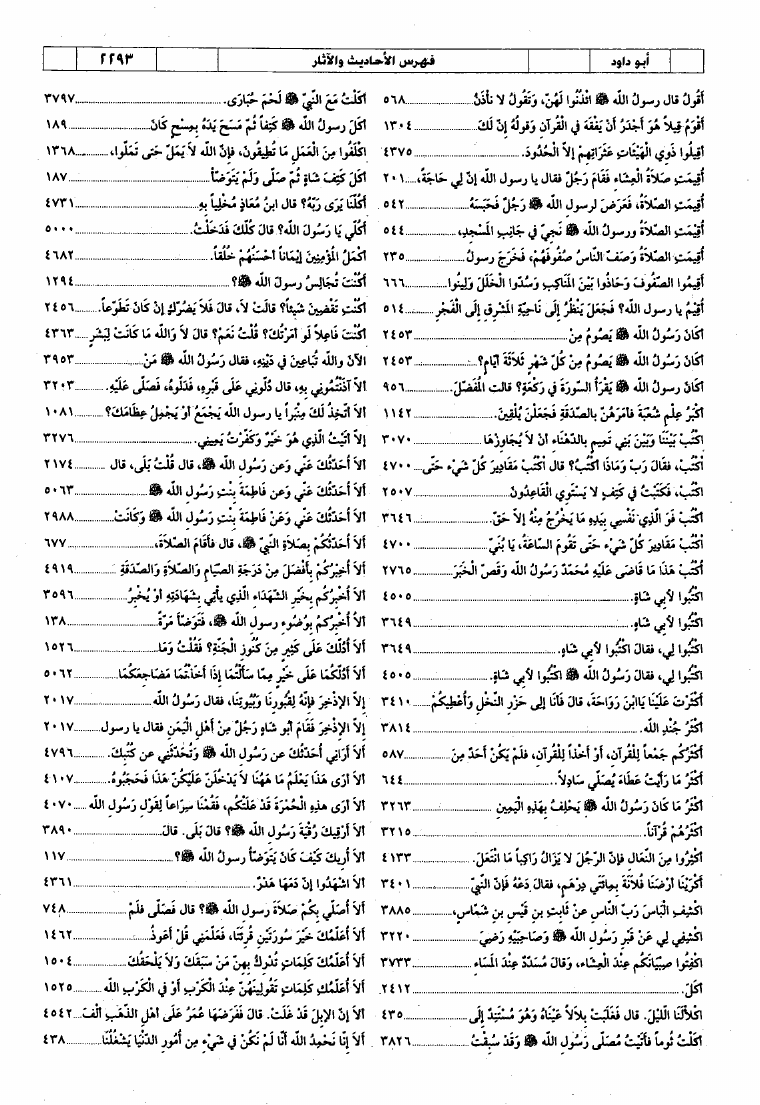 أبو داود
فهرس الأحاديث والآثار
٢٢٩٣
أَقُولُ قال رسولُ الله ﷺ ائْذَنُوا لَهُنّ، وَتَقُولُ لا نأذَنُ ٥٦٨
أَقْوَمُ قِيلاً هُوَ أجْدَرُ أنْ يَفْقَهَ في الْقُرآنِ وَقولُهُ إنّ لَكَ ١٣٠٤
أقِيلُوا ذَوِي الْهَيْئَاتِ عَثَرَاتِهِمْ إلاّ الْحُدُودَ. ٤٣٧٥
أُقِيمَتِ صَلاَةُ الْعِشَاءِ فَقَامَ رَجُلٌ فقال يا رسول الله إنّ لِي حَاجَةً، ٢٠١
أُقِيمَتِ الصّلاَةُ، فَعَرَضَ لرسولِ الله ﷺ رَجُلٌ فَحَبَسَهُ ٥٤٢
أُقِيمَتِ الصّلاةُ ورسولُ الله ﷺ نَجِيّ في جَانِبِ المَسْجِدِ، ٥٤٤
أُقِيمَتِ الصّلاَةُ وَصَفّ النّاسُ صُفُوفَهُمْ، فَخَرَجَ رسولُ ٢٣٥
أقِيمُوا الصّفُوفَ وَحَاذُوا بَيْنَ المَنَاكِبِ وَسُدّوا الْخَلَلَ وَلِينُوا ٦٦٦
أُقِيمُ يا رسولَ الله؟ فَجَعَلَ يَنْظُرُ إلَى نَاحِيَةِ المَشْرِقِ إلَى الْفَجْرِ ٥١٤
أكَانَ رَسُولُ الله ﷺ يَصُومُ مِنْ ٢٤٥٣
أكَانَ رَسُولُ الله ﷺ يَصُومُ مِنْ كلّ شَهْرٍ ثَلاَثَةَ أيّامٍ؟ ٢٤٥٣
أكَانَ رسولُ الله ﷺ يَقْرَأُ السّورَةَ في رَكْعَةٍ؟ قالت المُفَصّلَ. ٩٥٦
أكْبَرُ عِلْمِ شُعْبَةَ فأمَرَهُنّ بالصّدَقَةِ فَجَعَلْنَ يُلْقِينَ. ١١٤٢
اكْتُبْ بَيْنَنَا وَبَيْنَ بَنِي تَمِيمٍ بالدّهْنَاءِ أنْ لاَ يُجَاوِزَهَا ٣٠٧٠
اكْتُبْ، فقالَ رَبّ وَمَاذَا أكْتُبُ؟ قال اكْتُبْ مَقَادِيرَ كلّ شَيْءٍ حَتّى ٤٧٠٠
اكْتُبْ، فَكَتَبْتُ في كَتِفٍ لا يَسْتَوِي الْقَاعِدُونَ ٢٥٠٧
اكْتُبْ فَوَ الّذِي نَفْسِي بِيَدِهِ مَا يَخْرُجُ مِنْهُ إلاّ حَقّ. ٣٦٤٦
اكْتُبْ مَقَادِيرَ كلّ شَيْءٍ حَتّى تَقُومَ السّاعَةُ، يَا بُنَيّ ٤٧٠٠
اكْتُبْ هَذَا مَا قَاضَى عَلَيْهِ مُحَمّدٌ رَسُولُ الله وَقَصّ الْخَبَرَ ٢٧٦٥
اكْتُبُوا لأبِي شَاةٍ. ٤٥٠٥
اكْتُبُوا لأبِي شاهٍ. ٣٦٤٩
اكْتُبُوا لِي، فقالَ اكْتُبُوا لأبِي شاهٍ. ٣٦٤٩
اكْتُبُوا لِي، فقالَ رَسُولُ الله ﷺ اكْتُبُوا لأبِي شَاةٍ. ٤٥٠٥
أكْثَرْتَ عَلَيْنَا يَاابْنَ رَوَاحَةَ، قال فَأنَا إلى حَزْرِ النّخْلِ وَأُعْطِيكُمْ ٣٤١٠
أكْثَرُ جُنْدِ الله. ٣٨١٤
أكْثَرُكُمْ جَمْعاً لِلْقُرآنِ، أوْ أخْذاً لِلْقُرآنِ، فلَمْ يَكُنْ أحَدٌ مِنَ ٥٨٧
أكْثَرُ مَا رَأيْتُ عَطَاءَ يُصَلّي سَادِلاً. ٦٤٤
أكْثَرُ مَا كَانَ رَسُولُ الله ﷺ يَحْلِفُ بِهَذِهِ الْيَمِينِ ٣٢٦٣
أكْثَرُهُمْ قُرآناً. ٣٢١٥
أكْثِرُوا مِنَ النّعَالِ فإنّ الرّجُلَ لا يَزَالُ رَاكِباً مَا انْتَعَلَ. ٤١٣٣
أكْرَيْنَا أرْضَنَا فُلاَنَةَ بِمائَتَي دِرْهَمٍ، فقالَ دَعْهُ فإنّ النّبيّ ٣٤٠١
اكْشِفِ الْبَاسَ رَبّ النّاسِ عنْ ثَابِتِ بنِ قَيْسِ بنِ شَمّاسٍ، ٣٨٨٥
اكْشِفِي لِي عنْ قَبْرِ رَسُولِ الله ﷺ وَصَاحِبَيْهِ رَضِيَ ٣٢٢٠
اكْفِتُوا صِبْيَانَكُم عِنْدَ الْعِشَاءِ، وَقالَ مُسَدّدٌ عِنْدَ المَسَاءِ. ٣٧٣٣
أكَلَ. ٢٤١٢
اكْلأْلَنَا اللّيْلَ. قال فَغَلَبَتْ بِلاَلاً عَيْنَاهُ وَهُوَ مُسْتَنِدٌ إلَى ٤٣٥
أكَلْتُ ثُوماً فأتَيْتُ مُصَلّى رَسُولِ الله ﷺ وَقَدْ سُبِقْتُ ٣٨٢٦
أكَلْتُ مَعَ النّبيّ ﷺ لَحْمَ حُبَارَى. ٣٧٩٧
أكَلَ رسولُ الله ﷺ كَتِفاً ثُمّ مَسَحَ يَدَهُ بِمِسْحٍ كَانَ ١٨٩
اكْلَفُوا مِنَ الْعَمَلِ مَا تُطِيقُونَ، فإنّ الله لاَ يَمَلّ حَتى تَمَلّوا، ١٣٦٨
أكَلَ كَتِفَ شاةٍ ثُمّ صَلّى وَلَمْ يَتَوَضّأْ ١٨٧
أكُلّنَا يَرَى رَبّهُ؟ قال ابنُ مُعَاذٍ مُخْلِياً بِهِ ٤٧٣١
أكُلّي يَا رَسُولَ الله؟ قالَ كُلّكَ فَدَخَلْتُ. ٥٠٠٠
أكْمَلُ المُؤْمِنِينَ إيْمَاناً أحْسَنُهُمْ خُلُقاً. ٤٦٨٢
أكُنْتَ تُجَالِسُ رسولَ الله ﷺ؟ ١٢٩٤
أكُنْتِ تَقْضِينَ شَيْئاً؟ قالَتْ لاَ، قالَ فَلاَ يَضُرّكِ إنْ كَانَ تَطَوّعاً. ٢٤٥٦
أكُنْتَ فَاعِلاً لَو أمَرْتُكَ؟ قُلْتُ نَعَمْ؟ قالَ لاَ وَالله مَا كَانَتْ لِبَشَرٍ ٤٣٦٣
الآنَ وَالله تُبَاعِينَ في دَيْنِهِ، فقال رَسُولُ الله ﷺ مَنْ ٣٩٥٣
ألاَ آذَنْتُمُونِي بِهِ، قال دُلّونِي عَلَى قَبْرِهِ، فَدَلّوهُ، فَصَلّى عَلَيْهِ. ٣٢٠٣
ألاَ أتّخِذُ لَكَ مِنْبَراً يا رسولَ الله يَجْمَعُ أوْ يَحْمِلُ عِظَامَكَ؟ ١٠٨١
إلاّ أتَيْتُ الّذِي هُوَ خَيْرٌ وَكَفّرْتُ يَمِينِي. ٣٢٧٦
ألاَ أُحَدّثُكَ عَنّي وَعن رَسُولِ الله ﷺ، قال قُلْتُ بَلَى، قال ٢١٧٤
ألاَ أُحَدّثُكَ عَنّي وَعن فَاطِمَةَ بِنْتِ رَسُولِ الله ﷺ ٥٠٦٣
ألاَ أُحَدّثُكَ عَنّي وَعَنْ فَاطِمَةَ بِنْتِ رَسُولِ الله ﷺ وَكَانَتْ ٢٩٨٨
ألاَ أُحَدّثُكُمْ بِصَلاَةِ النّبيّ ﷺ، قال فأقَامَ الصّلاَةَ، ٦٧٧
ألاَ أُخْبِرُكُمْ بِأفْضَلَ مِنْ دَرَجَةِ الصّيَامِ وَالصّلاَةِ وَالصّدَقَةِ ٤٩١٩
ألاَ أُخْبِرُكُمْ بِخَيْرِ الشّهَدَاءِ الّذِي يأتِي بِشَهَادَتِهِ أوْ يُخْبِرُ ٣٥٩٦
ألاَ أُخْبِرُكُمْ بِوُضُوءِ رسولِ الله ﷺ، فَتَوَضّأ مَرّةً ١٣٨
ألاَ أدُلّكَ عَلَى كَثِيرٍ مِنْ كُنُوزِ الْجَنّةِ؟ فَقُلْتُ وَمَا ١٥٢٦
ألاَ أدُلّكُمَا عَلَى خَيْرٍ مِمّا سَألْتُمَا إذَا أخَذْتُمَا مَضَاجِعَكُمَا ٥٠٦٢
إلاّ الإذْخِرَ فإنّهُ لِقُبُورِنَا وَبُيُوتِنَا، فقال رَسُولُ الله ٢٠١٧
إلاّ الإذْخِرَ فَقَامَ أبُو شَاهٍ رَجُلٌ مِنْ أهْلِ الْيَمَنِ فقال يا رسولَ ٢٠١٧
ألاَ أرَانِي أُحَدّثُكَ عن رَسُولِ الله ﷺ وَتُحَدّثُنِي عن كُتُبِكَ. ٤٧٩٦
ألاَ أرَى هَذَا يَعْلَمُ مَا هَهُنَا لاَ يَدْخُلَنّ عَلَيْكُنّ هَذَا فَحَجَبُوهُ. ٤١٠٧
ألاَ أرَى هذِهِ الْحُمْرَةَ قَدْ عَلَتْكُم، فَقُمْنَا سِرَاعاً لِقَوْلِ رَسُولِ الله ٤٠٧٠
ألاَ أرْقِيكَ رُقْيَةَ رَسُولِ الله ﷺ؟ قالَ بَلَى. قالَ ٣٨٩٠
ألاَ أُرِيكَ كَيْفَ كَانَ يَتَوَضّأُ رسولُ الله ﷺ؟ ١١٧
ألاَ اشْهَدُوا إنّ دَمَهَا هَدَرٌ. ٤٣٦١
ألاَ أُصَلّي بِكُمْ صَلاَةَ رسولِ الله ﷺ؟ قال فَصَلّى فلَمْ ٧٤٨
ألاَ أُعَلّمُكَ خَيْرَ سورَتَيْنِ قُرِئَتَا، فَعَلّمَنِي قُلْ أعُوذُ ١٤٦٢
ألاَ أُعَلّمُكَ كَلِمَاتٍ تُدْرِكُ بِهِنّ مَنْ سَبَقَكَ وَلاَ يَلْحَقُكَ ١٥٠٤
ألاَ أُعَلّمُكِ كَلِمَاتٍ تَقُولِينَهُنّ عِنْدَ الْكَرْبِ أوْ في الْكَرْبِ الله ١٥٢٥
ألاَ إنّ الإبِلَ قَدْ غَلَتْ. قالَ فَفَرَضَهَا عُمَرُ عَلَى أهْلِ الذّهَبِ ألْفَ ٤٥٤٢
ألاَ إنّا نَحْمِدُ الله أنّا لَمْ نَكُنْ في شَيْءٍ مِن أُمُورِ الدّنْيَا يَشْغَلُنَا ٤٣٨